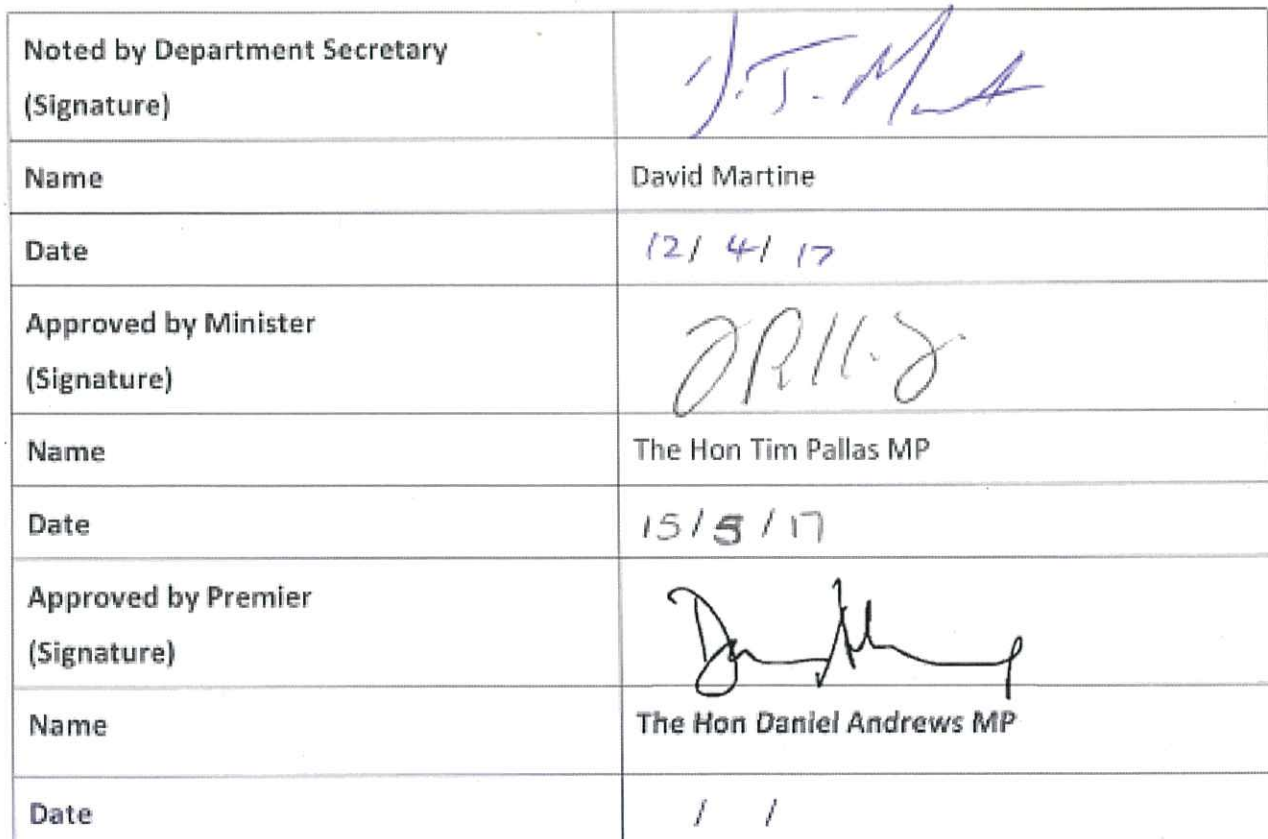 Noted by Department Secretary
(Signature)
Name David Martine
Date 12/ 4/ 17
Approved by Minister
(Signature)
Name The Hon Tim Pallas MP
Date 15/5/17
Approved by Premier
(Signature)
Name The Hon Daniel Andrews MP
Date / /